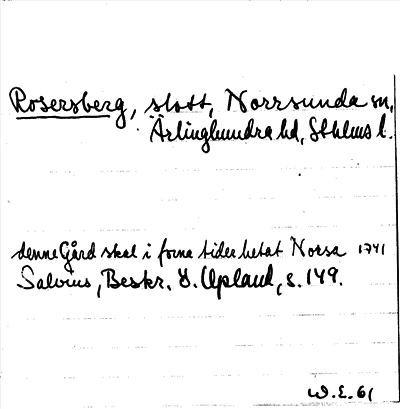 Rosersberg, slott, Norrsunda sn,
Ärlinghundra hd, Sthlms l.
denne Gård skal i forna tider hetat Norsa 1741
Salvius, Beskr. ö. Upland, s. 149.
W.E. 61